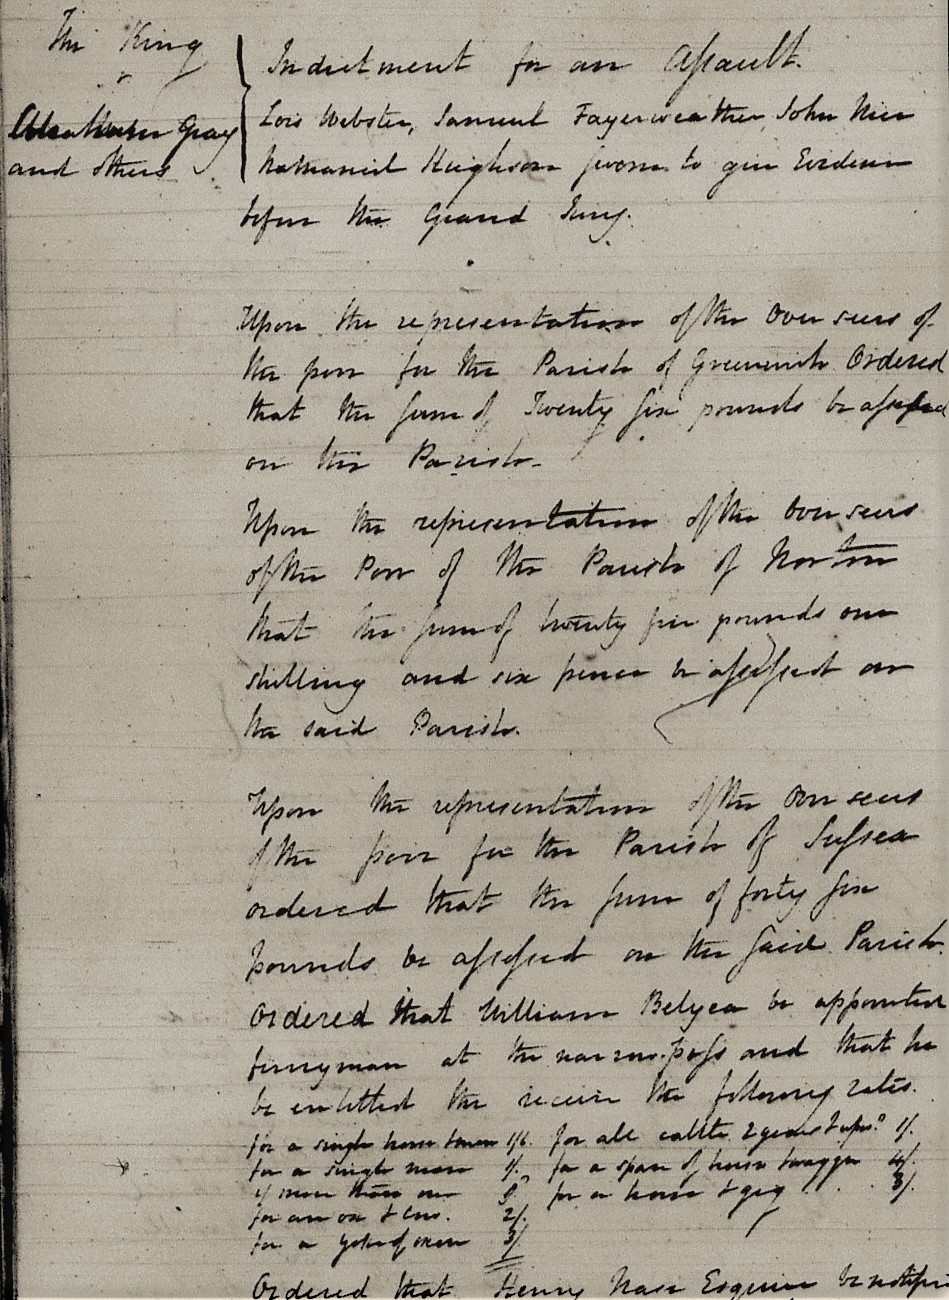 The King
v
Gray
and others
Indictment for an Assault.
Lois Webster, Samuel Fayerweather, John Nice
Nathaniel Hughson sworn to give Evidence
before the Grand Jury.
Upon the representation of the Overseers of
the poor for the Parish of Greenwich Ordered
that the sum of Twenty six pounds be assessed
on the Parish.
Upon the representation of the Overseers
of the Poor of the Parish of Norton
that the sum of twenty five pounds one
shilling and six pence be assessed on
the said Parish.
Upon the representation of the Overseers
of the poor for the Parish of Sussex
ordered that the sum of forty six
pounds be assessed on the said Parish.
Ordered that William Belyea be appointed
ferryman at the narrow pass and that he
be entitled the receive the following rates.
for a single horse 1/6 for all cattle 2 years & up 1/.
for a single man 1/. for a span of horses & waggon 4/.
if more than one 9d for a horse & gig . . . 3/.
for an ox & cow. 2/.
for a yoke of oxen 3/
Ordered that Henry Nase Esquire be notified